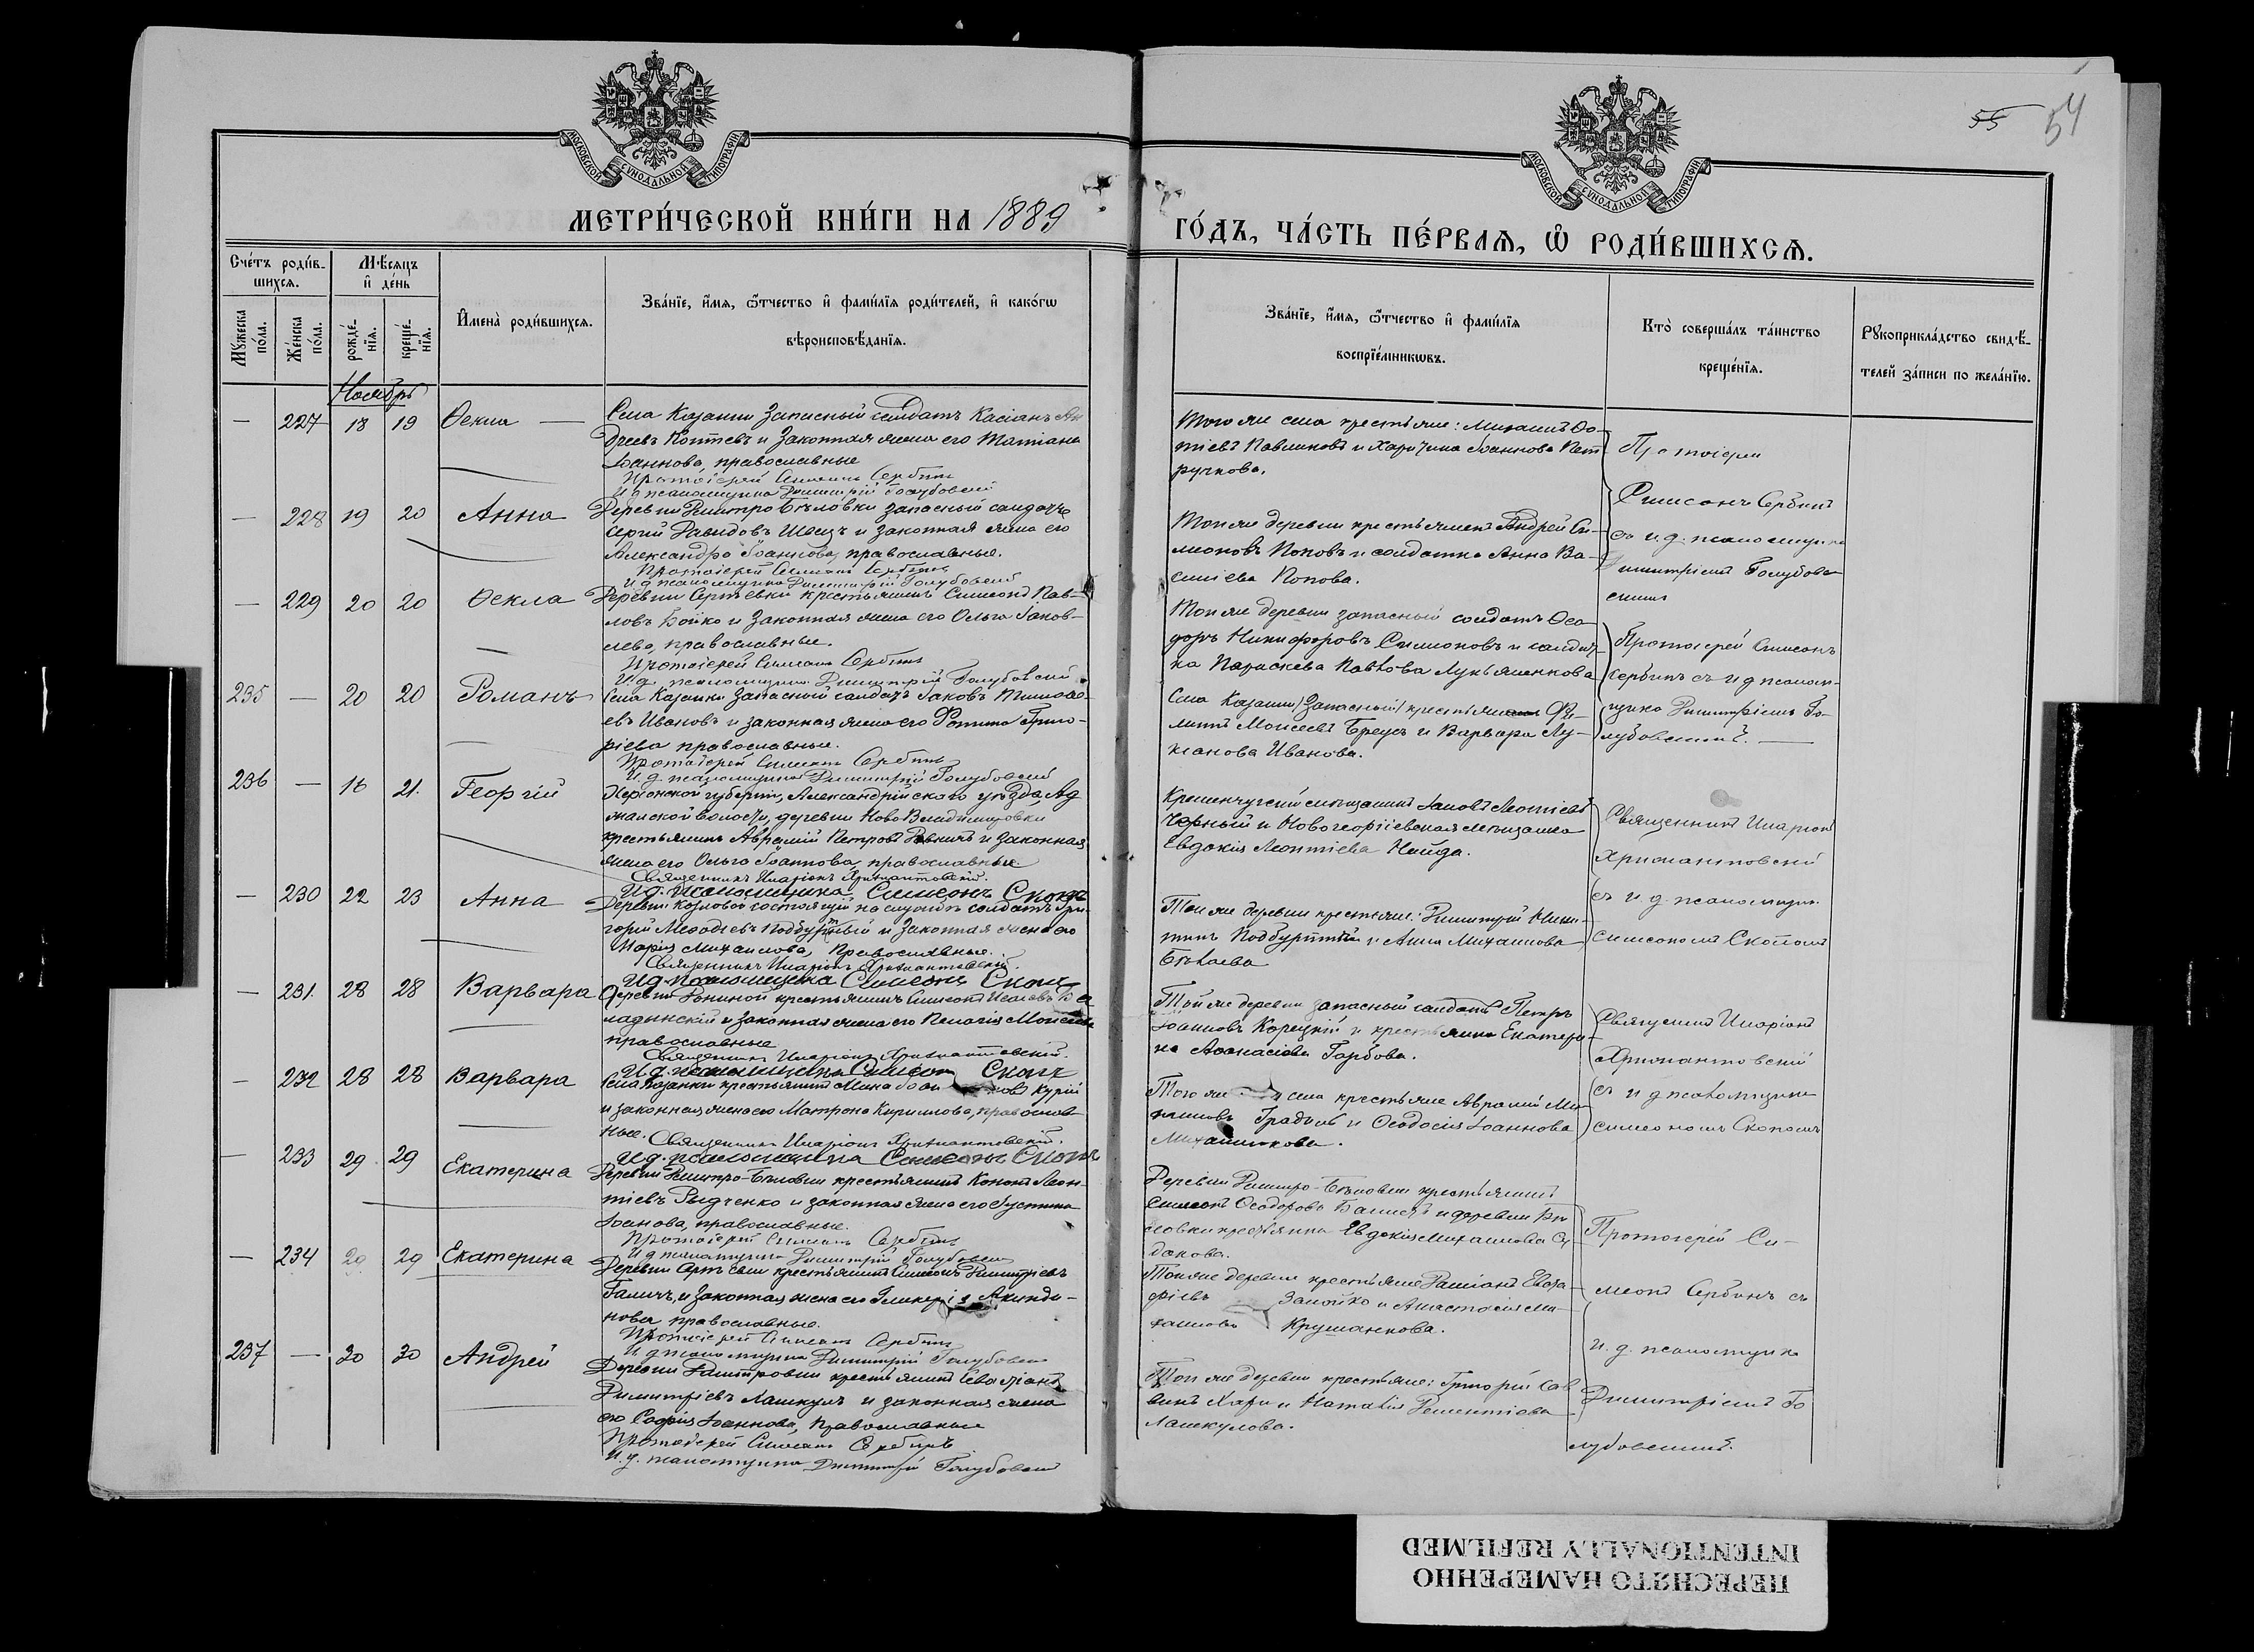 55 54
МОСКОВСКОЙ СУНОДАЛЬНОЙ ТИПОГРАФІИ
МОСКОВСКОЙ СУНОДАЛЬНОЙ ТИПОГРАФІИ
МЕТРИ́ЧЕСКОЙ КНИ́ГИ НА 1889
ГО́ДЪ, ЧА́СТЬ ПЕ́РВАЯ, Ѡ РОДИ́ВШИХСЯ.
Сче́тъ роди́в-
шихся.
Мꙋжеска по́ла.
Же́нска по́ла.
Мѣ́сяцъ
и҆ де́нь
рожде́-
нїя.
креще́-
нїя.
И҆мена̀ роди́вшихся.
Зва́нїе, и҆́мя, ѻ҆́тчество и҆ фами́лїя роди́телей, и҆ како́гѡ
вѣроисповѣ́данїя.
Зва́нїе, и҆́мя, ѻ҆́тчество и҆ фами́лїя
воспрїе́мникѡвъ.
Кто̀ соверша́лъ та́инство
креще́нїя.
Рꙋкоприкла́дство свидѣ́-
телей за́писи по жела́нїю.
Ноябрь
— 227 18 19 Ѳекла —
Села Казанки запасный солдатъ Касіанъ Ан
дреевъ Коптевъ и законная жена его Татіана
Іоаннова, православные
Протоіерей Симеонъ Сербинъ
И д псаломщика Димитрій Голубовскій
Того же села крестьяне: Михаилъ Фо-
тіевъ Павликовъ и Харитина Іоаннова Пет
ручкова.
Протоіерей
Симеонъ Сербинъ
съ и. д. псаломщика
Димитріемъ Голубов
скимъ
— 228 19 20 Анна
Деревни Дмитро-Бѣловки запасный солдатъ
Сергій Давидовъ Швецъ и законная жена его
Александра Іоаннова, православные.
Протоіерей Симеонъ Сербинъ
И д псаломщика Димитрій Голубовскій
Той же деревни крестьянинъ Андрей Си-
меоновъ Поповъ и солдатка Анна Ва-
силіева Попова.
— 229 20 20 Ѳекла
Деревни Сергѣевки крестьянинъ Симеонъ Пав-
ловъ Бойко и законная жена его Ольга Іаков-
лева, православные.
Протоіерей Симеонъ Сербинъ
И. д. псаломщика Димитрій Голубовскій
Той же деревни запасный солдатъ Ѳео-
доръ Никифоровъ Симоновъ и солдат-
ка Параскева Павлова Лукьяненкова
Протоіерей Симеонъ
Сербинъ съ и д псалом-
щика Димитріемъ Го-
лубовскимъ. —
235 — 20 20 Романъ
Села Казанки запасный солдатъ Іаковъ Тимоѳе-
евъ Ивановъ и законная жена его Фотина Григо-
ріева православные.
Протоіерей Симеонъ Сербинъ
И. д. псаломщика Димитрій Голубовскій
Села Казанки запасный крестьянинъ Фи-
липпъ Моисеевъ Бреусъ и Варвара Лу-
кіанова Иванова.
236 — 16 21. Георгій
Херсонской губерніи, Александрійского уѣзда, Ад
жамской волости, деревни Ново Владимировки
крестьянинъ Аврамій Петровъ и законная
жена его Ольга Іоаннова, православные.
Священникъ Иларіонъ
И.д. псаломщика Симеонъ Скопъ
Кременчугскій мѣщанинъ Іаковъ Леонтіевъ
Черный и Новогеоргіевская мѣщанка
Евдокія Леонтіева Найда.
Священникъ Иларіонъ
съ и. д. псаломщик.
Симеономъ Скопомъ
— 230 22 23 Анна
Деревни Козловой состоящій на службѣ солдатъ Гри-
горій Меѳодіевъ и законная жена его
Марія Михаилова, православные.
Священникъ Иларіонъ
И.д. псаломщика Симеонъ Скопъ
Той же деревни крестьяне: Димитрій Ники-
тинъ и Анна Михаилова
Бѣлаева
— 231. 28 28 Варвара
крестьянинъ Симеонъ Исаковъ
и законная жена его Пелагія Моисеева
православные
Священникъ Иларіонъ
И.д. псаломщика Симеонъ Скопъ
Той же деревни запасный солдатъ Петръ
Іоанновъ Корецкій и крестьянка Екатери-
на Аѳанасіева Горбова.
Священникъ Иларіонъ
съ и д псаломщика
Симеономъ Скопомъ
— 232 28 28 Варвара
Села Казанки крестьянинъ Мина Курій
и законная жена его Матрона Кириллова, православ-
ные. Священникъ Иларіонъ
И д. псаломщика Симеонъ Скопъ
Того же села крестьяне Аврамій Ми-
хаиловъ и Ѳеодосія Іоаннова
— 233 29 29 Екатерина
Деревни Дмитро-Бѣловки крестьянинъ Кононъ Леон-
тіевъ Рыдченко и законная жена его Іустина
Іоанова, православные.
Протоіерей Симеонъ Сербинъ
И д псаломщика Димитрій Голубовскій
Деревни Димитро-Бѣловки крестьянинъ
Симеонъ Ѳеодоровъ и деревни
крестьянка Евдокія Михаилова
Протоіерей Си-
меонъ Сербинъ съ
и. д. псаломщика
Димитріемъ Го
лубовскимъ.
— 234 29 29 Екатерина
Деревни Сергѣевки крестьянинъ Симеонъ Димитріевъ
Галичъ, и законная жена его Гликерія Акинди-
нова православные.
Протоіерей Симеонъ Сербинъ
И д псаломщика Димитрій Голубовскій
Той же деревни крестьяне
Замойко и Анастасія Ми-
хаилова Крушанкова.
237 — 30 30 Андрей
Деревни Дмитровки крестьянинъ
Димитріевъ Лашкулъ и законная жена
его Софія Іоаннова, православные
Протоіерей Симеонъ Сербинъ
И. д. псаломщика Димитрій Голубовскій
Той же деревни крестьяне: Григорій Сав
винъ и Наталія Дементіева
Лашкулова.
ПЕРЕСНЯТО НАМЕРЕННО
INTENTIONALLY REFILMED